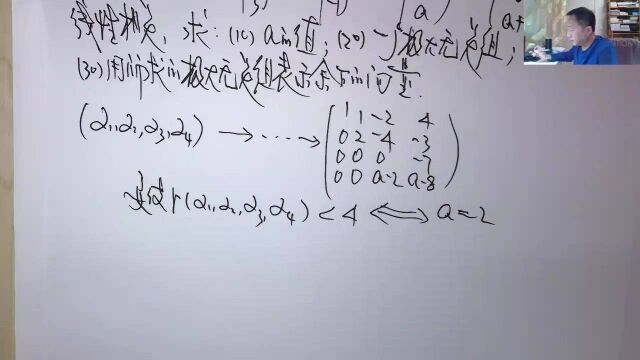 线性相关, 求: (1°) a的值; (2°) 一个极大无关组;
(3°) 用所求的极大无关组表示余下的向量.
(α₁,α₂,α₃,α₄) → ⋯ → ( 1 1 -2 4
0 2 -4 -3
0 0 0 -7
0 0 a-2 a-8 )
r(α₁,α₂,α₃,α₄) < 4 ⟺ a=2